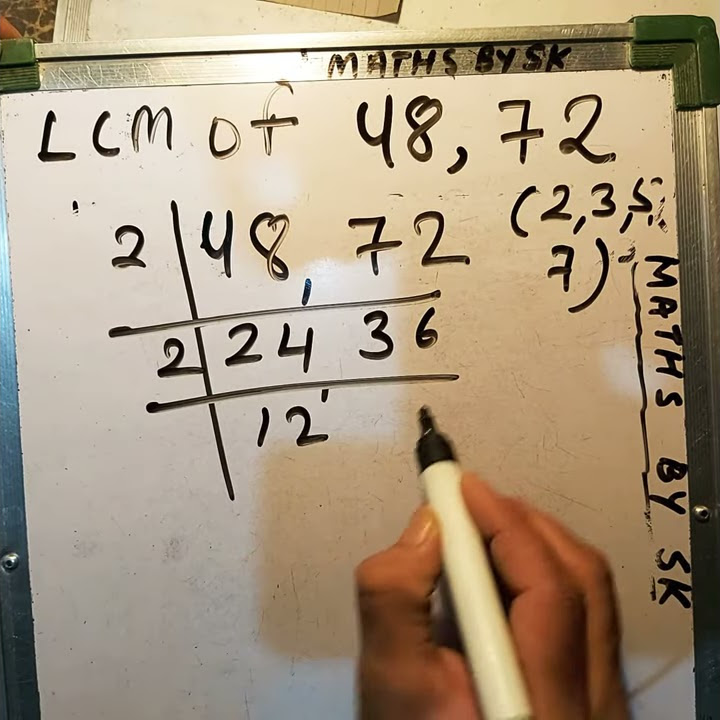 MATHS BY SK
LCM of 48, 72
(2,3,5,
7)
2 48, 72
2 24, 36
12,
MATHS BY SK